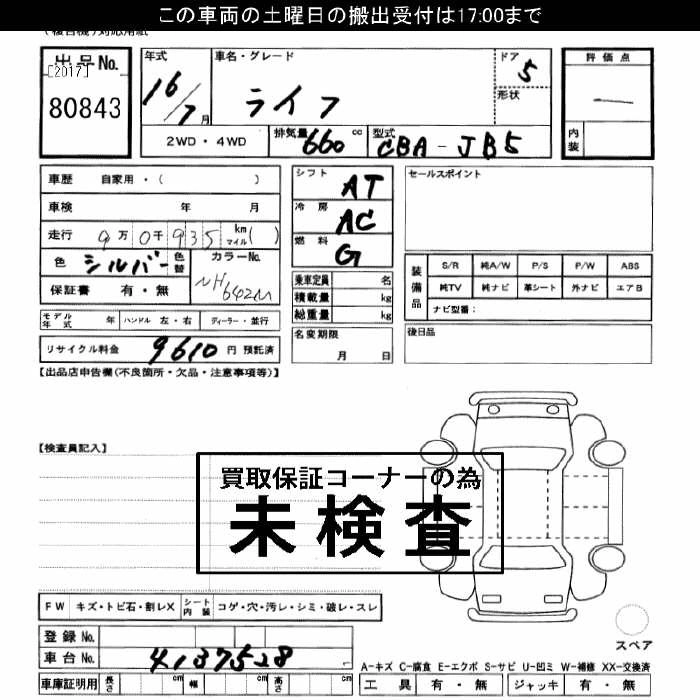 この車両の土曜日の搬出受付は17:00まで
(複合機)対応用紙
出品No.
[2017]
80843
年式
16/7月
車名・グレード
ライフ
ドア
5
形状
評価点
内装
2WD・4WD
排気量 660 cc
型式 CBA-JB5
車歴 自家用・( )
車検 年 月
走行 9万0千935 km マイル( )
色 シルバー 色替
カラーNo.
NH642M
保証書 有・無
シフト AT
冷房 AC
燃料 G
セールスポイント
乗車定員 名
積載量 kg
総重量 kg
装備品
S/R 純A/W P/S P/W ABS
純TV 純ナビ 革シート 外ナビ エアB
ナビ型番:
モデル年式 年 ハンドル 左・右 ディーラー・並行
リサイクル料金 9610 円 預託済
名変期限
月 日
後日品
【出品店申告欄(不良箇所・欠品・注意事項等)】
【検査員記入】
買取保証コーナーの為
未検査
FW キズ・トビ石・割レX シート内装 コゲ・穴・汚レ・シミ・破レ・スレ
登録No.
車台No. 4137528
車庫証明用 長さ cm 幅 cm 高さ cm
スペア
A-キズ C-腐食 E-エクボ S-サビ U-凹ミ W-補修 XX-交換済
工具 有・無 ジャッキ 有・無